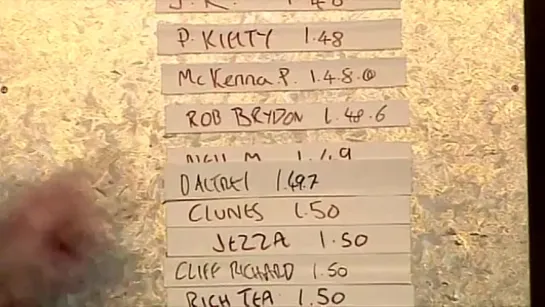 J. K. 1.48
P. KIELTY 1.48
McKenna P. 1.4.8.0
ROB BRYDON 1.48.6
RICH M 1.49
DALTREY 1.49.7
CLUNES 1.50
JEZZA 1.50
CLIFF RICHARD 1.50
RICH TEA 1.50